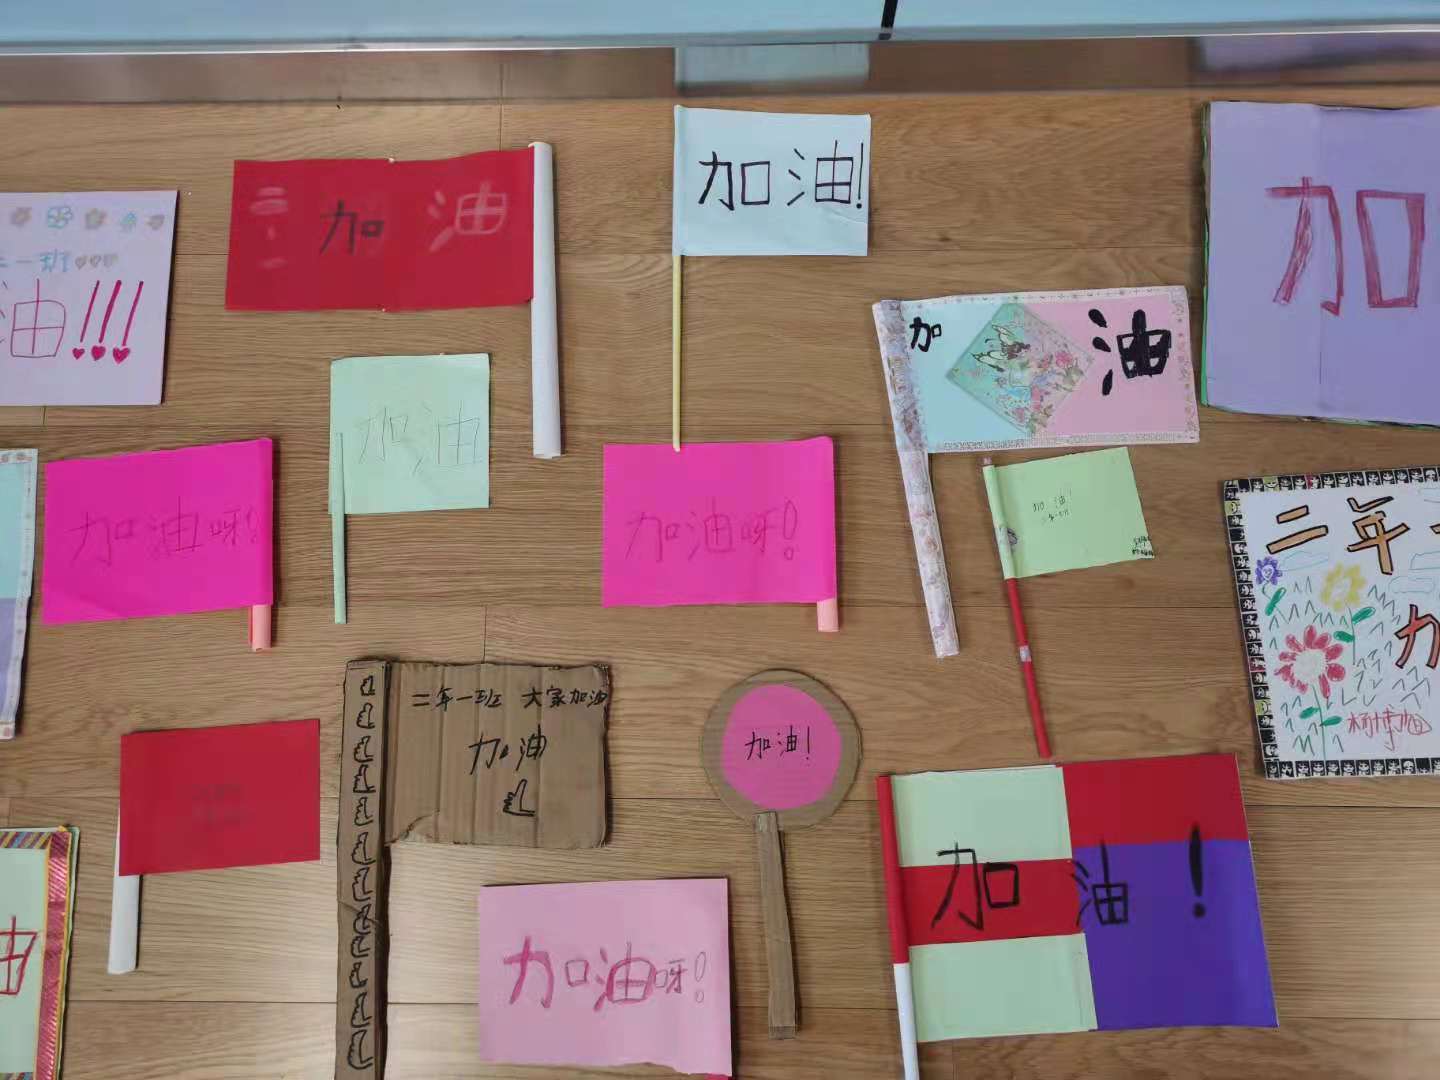 一班
油!!!
加油
加油!
加
加油
加油
加油呀!
加油呀!
加油!
二年一班
二年
加
杨博旭
二年一班 大家加油
加油
加油!
加油!
加油呀!
油